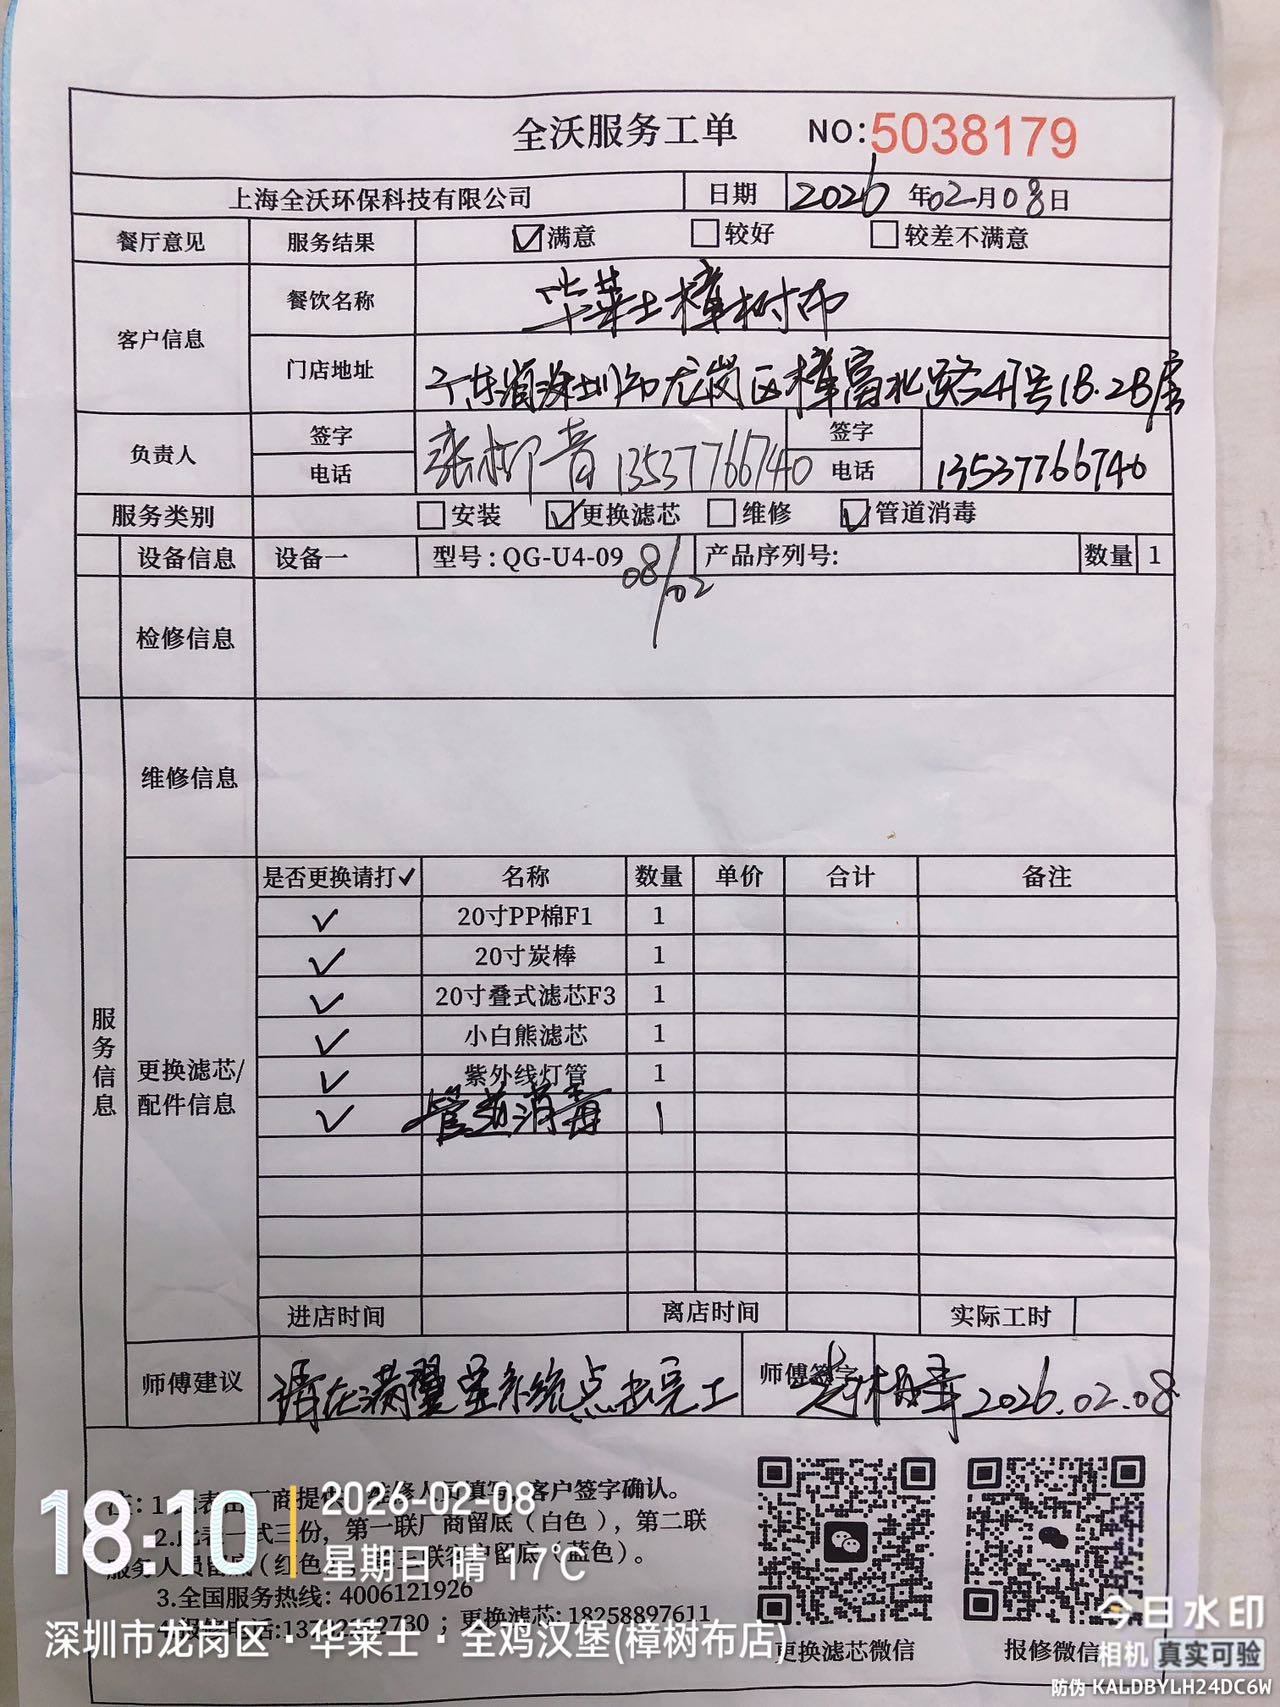 全沃服务工单 NO:5038179
上海全沃环保科技有限公司 日期 2026年02月08日
餐厅意见 服务结果 ☑满意 □较好 □较差不满意
客户信息 餐饮名称 华莱士樟树布
门店地址 广东省深圳市龙岗区樟富北路47号1B.2B屋
负责人 签字 张柳音 签字
电话 13537766740 电话 13537766740
服务类别 □安装 ☑更换滤芯 □维修 ☑管道消毒
设备信息 设备一 型号:QG-U4-09 产品序列号: 数量 1
08/02
检修信息
维修信息
服务信息
更换滤芯/配件信息
是否更换请打✓ 名称 数量 单价 合计 备注
✓ 20寸PP棉F1 1
✓ 20寸炭棒 1
✓ 20寸叠式滤芯F3 1
✓ 小白熊滤芯 1
✓ 紫外线灯管 1
✓ 管道消毒 1
进店时间 离店时间 实际工时
师傅建议 请在满翼星系统点击完工 师傅签字 2026.02.08
注: 1. 表由厂商提供 维修人员填写,客户签字确认。
2.此表一式三份,第一联厂商留底(白色),第二联
服务人员留底(红色 联客户留底(蓝色)。
3.全国服务热线: 4006121926
2730 ; 更换滤芯: 18258897611
更换滤芯微信 报修微信
18:10 2026-02-08
星期日 晴 17℃
深圳市龙岗区·华莱士·全鸡汉堡(樟树布店)
今日水印
相机 真实可验
防伪 KALDBYLH24DC6W